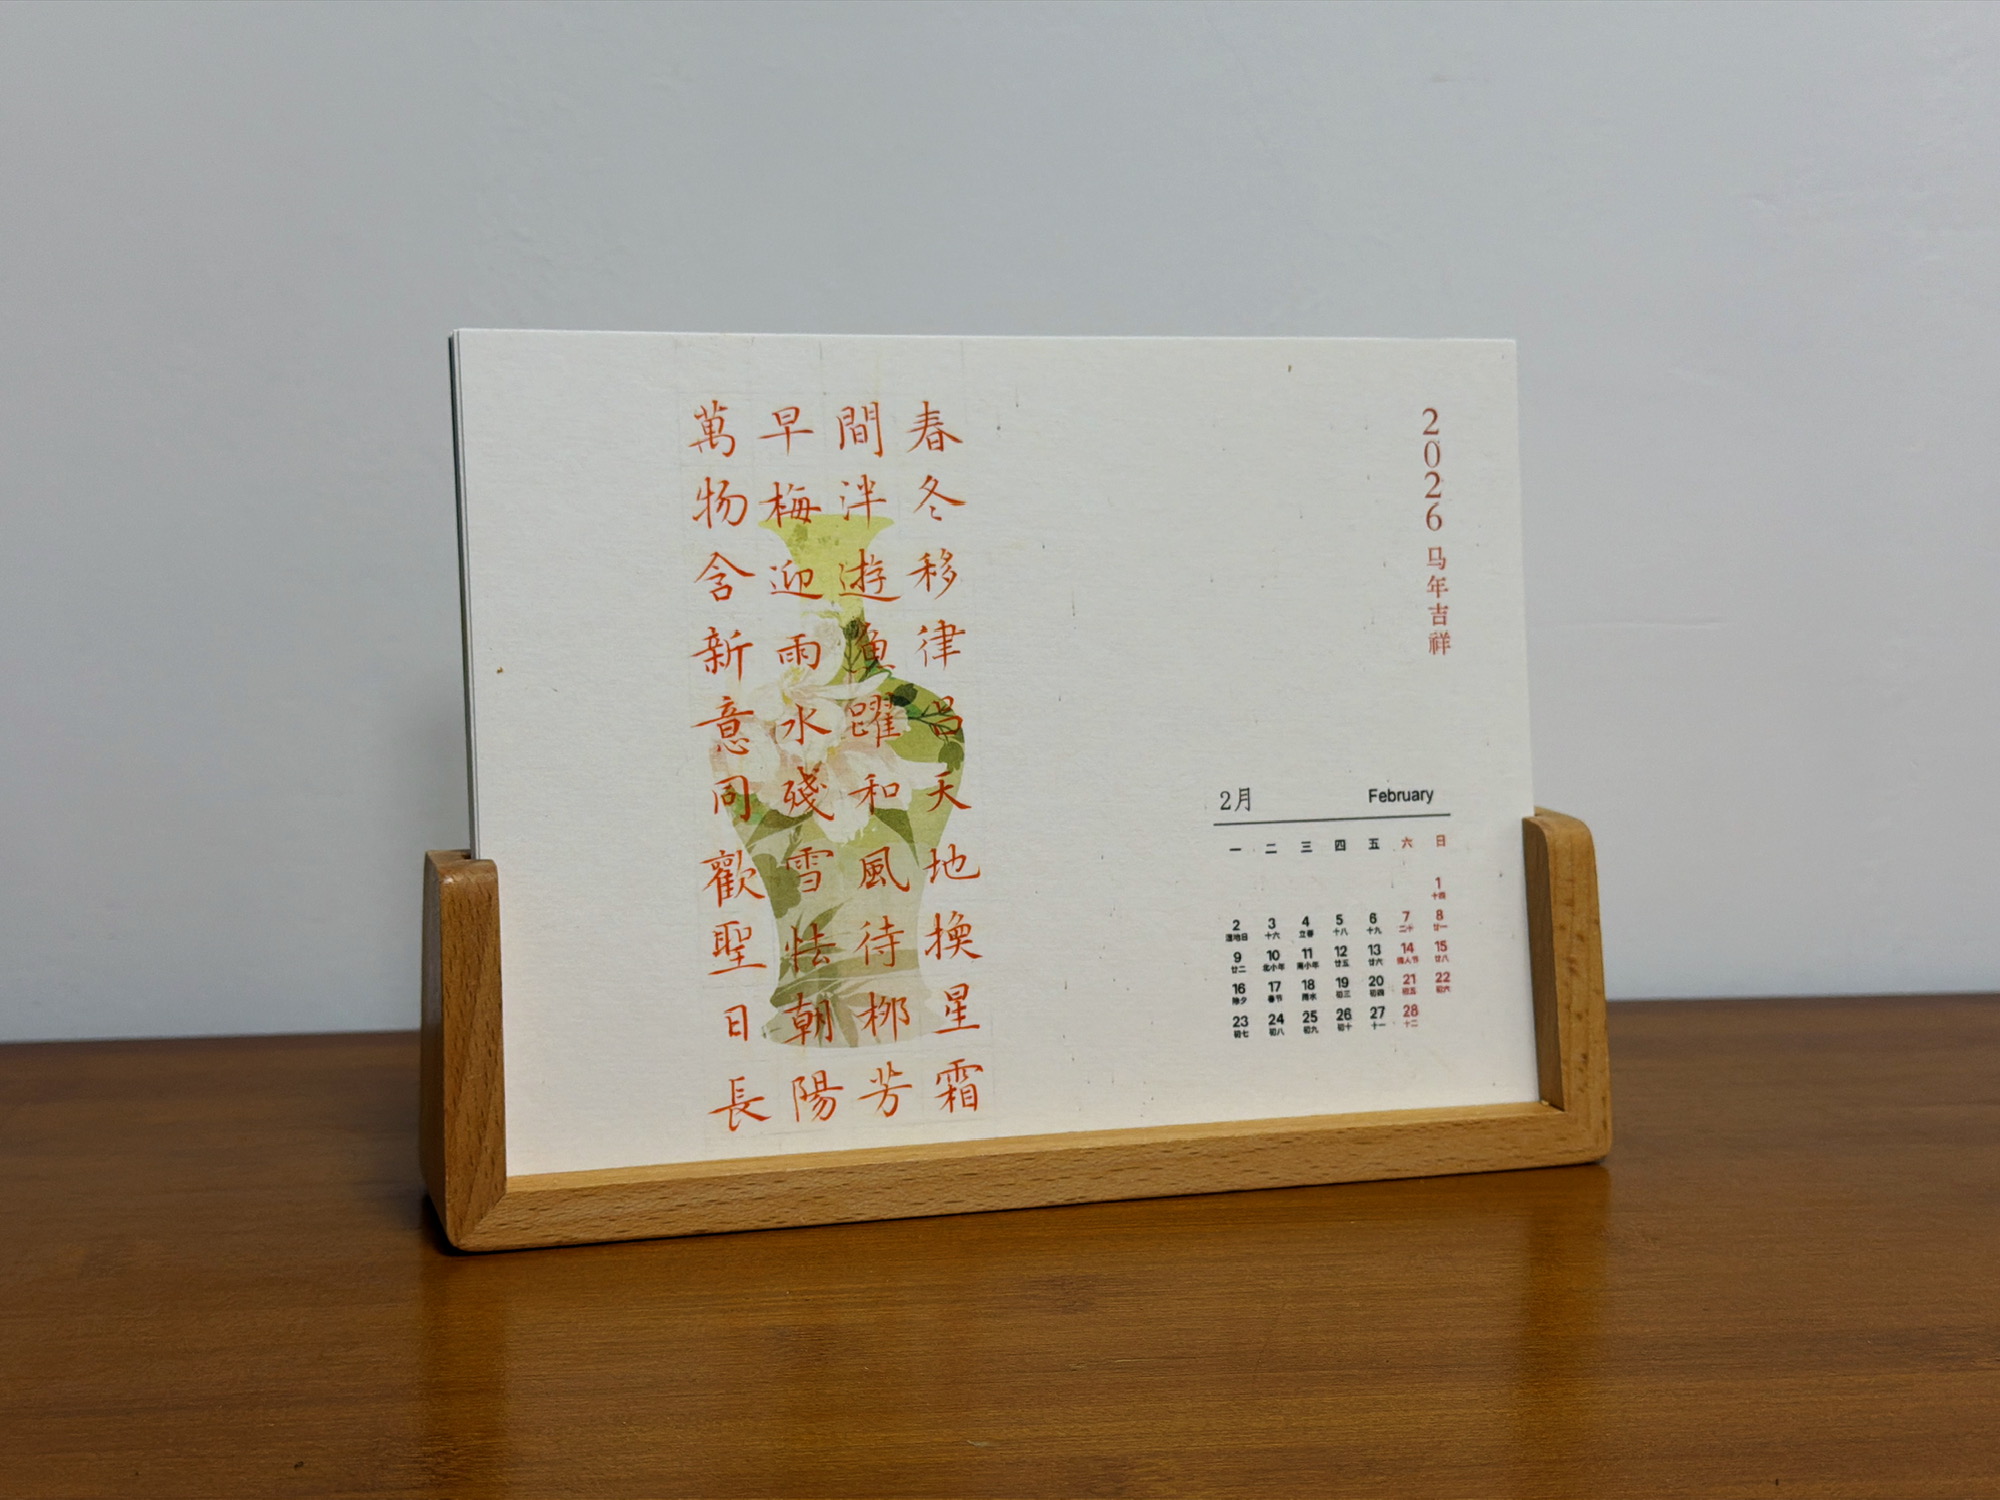 春冬移律呂天地換星霜
間泮遊魚躍和風待柳芳
早梅迎雨水殘雪怯朝陽
萬物含新意同歡聖日長
2026 马年吉祥
2月 February
一 二 三 四 五 六 日
1
十四
2 3 4 5 6 7 8
湿地日 十六 立春 十八 十九 二十 廿一
9 10 11 12 13 14 15
廿二 北小年 南小年 廿五 廿六 情人节 廿八
16 17 18 19 20 21 22
除夕 春节 雨水 初三 初四 初五 初六
23 24 25 26 27 28
初七 初八 初九 初十 十一 十二